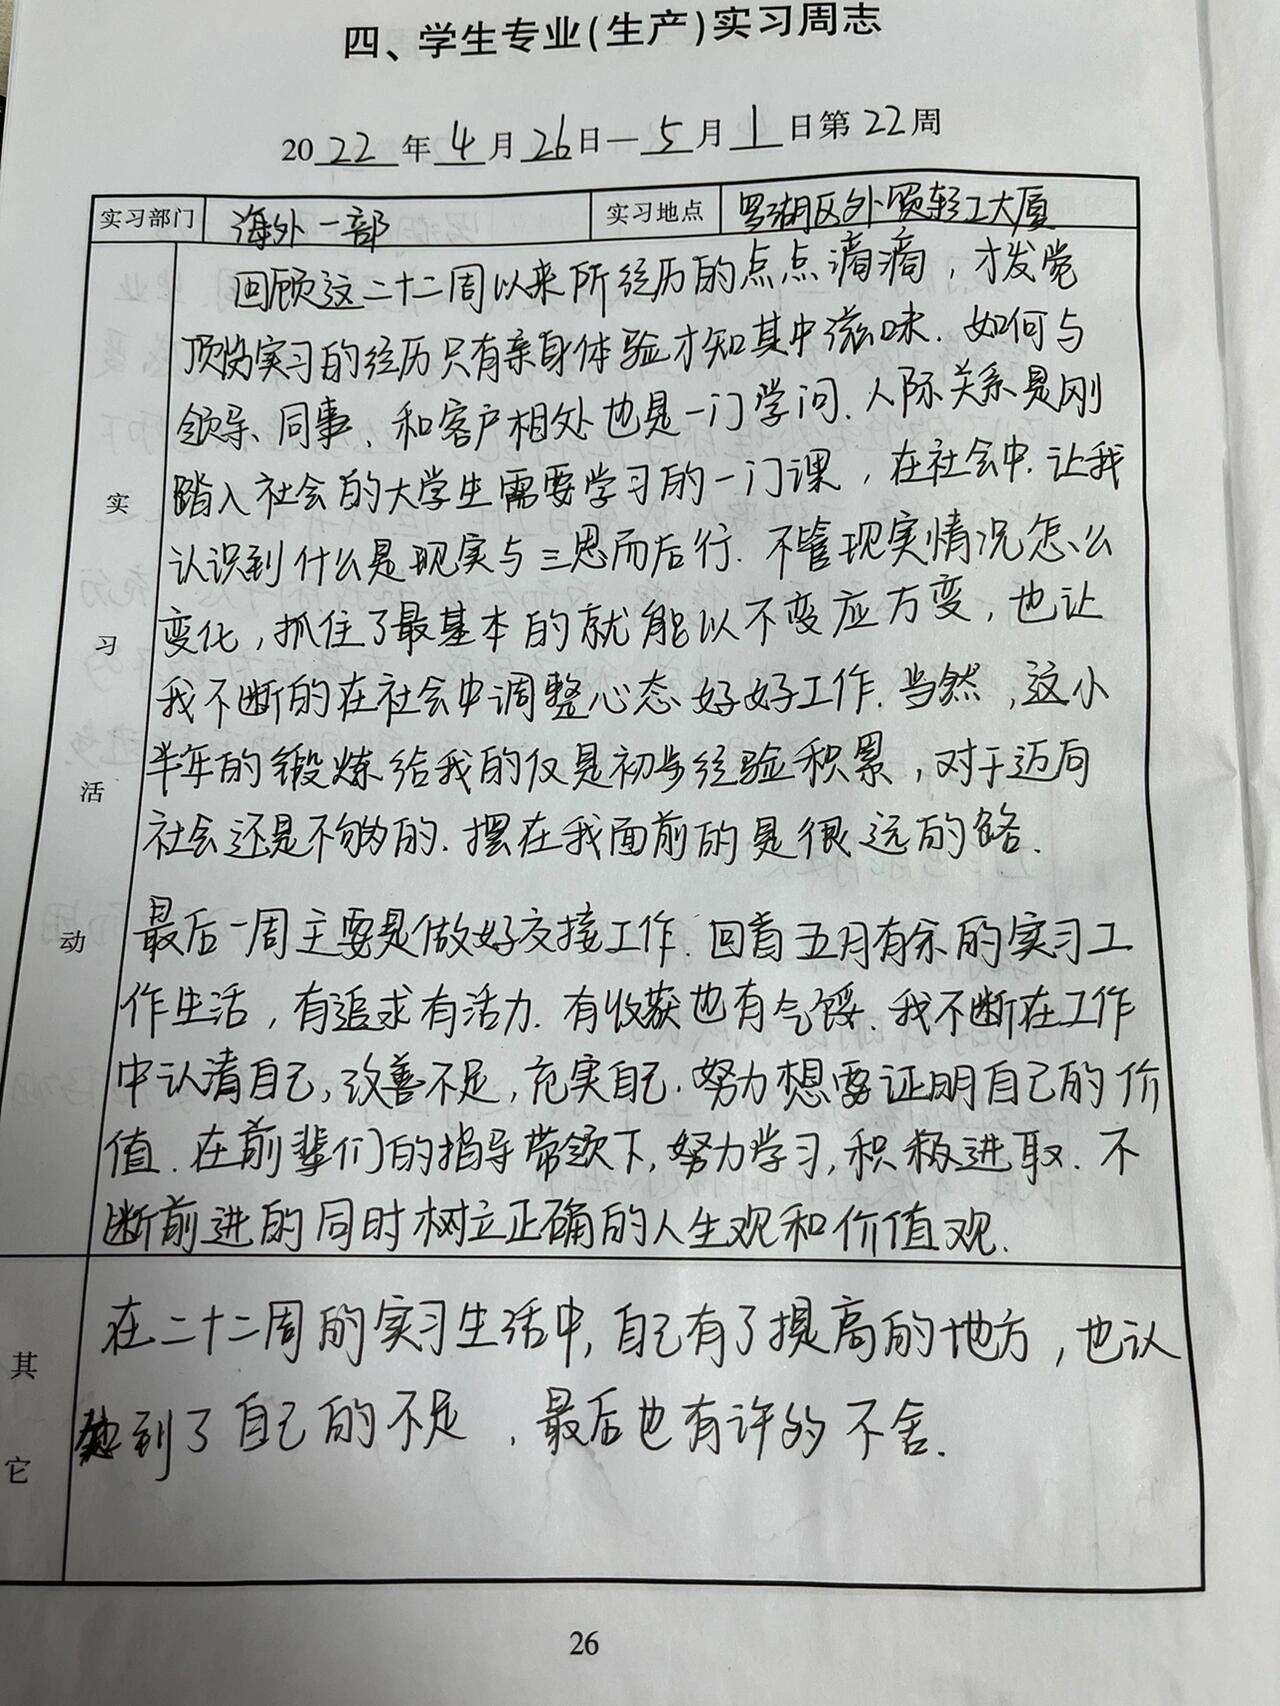 四、学生专业(生产)实习周志
2022年4月26日—5月1日第22周
实习部门 海外一部 实习地点 罗湖区外贸轻工大厦
回顾这二十二周以来所经历的点点滴滴，才发觉
顶岗实习的经历只有亲身体验才知其中滋味.如何与
领导、同事、和客户相处也是一门学问.人际关系是刚
踏入社会的大学生需要学习的一门课，在社会中.让我
认识到什么是现实与三思而后行.不管现实情况怎么
变化，抓住了最基本的就能以不变应万变，也让
我不断的在社会中调整心态好好工作.当然，这小
半年的锻炼给我的仅是初步经验积累，对于迈向
社会还是不够的.摆在我面前的是很远的路.
最后一周主要是做好交接工作.回首五月有余的实习工
作生活，有追求有活力.有收获也有气馁.我不断在工作
中认清自己，改善不足，充实自己.努力想要证明自己的价
值.在前辈们的指导带领下，努力学习，积极进取.不
断前进的同时树立正确的人生观和价值观.
实习活动
在二十二周的实习生活中，自己有了提高的地方，也认
到了自己的不足，最后也有许的不舍.
其它
26